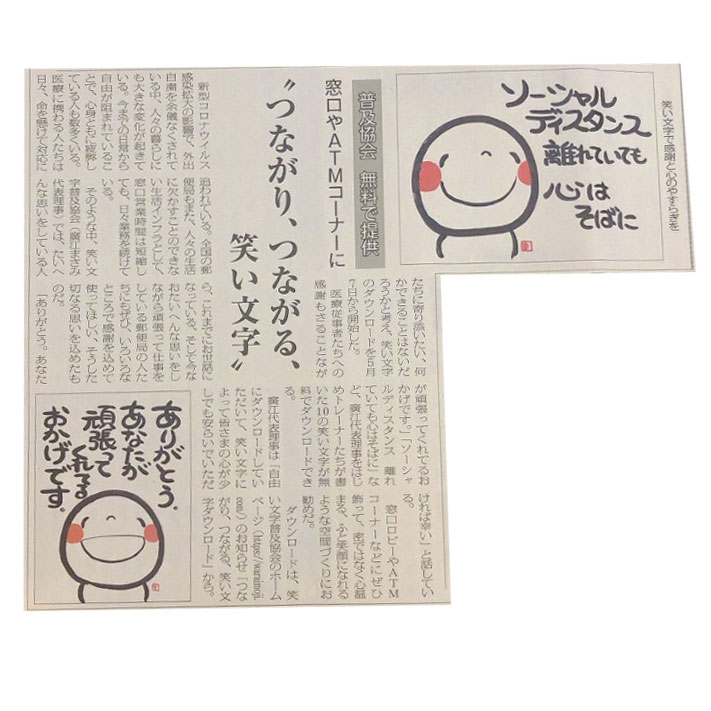 笑い文字で感謝と心のやすらぎを
ソーシャル
ディスタンス
離れていても
心は
そばに
普及協会 無料で提供
窓口やATMコーナーに
〝つながり、つながる、
笑い文字〟
新型コロナウイルス
感染拡大の影響で、外出
自粛を余儀なくされて
いる中、人々の暮らしに
も大きな変化が起きて
いる。今までの日常から
自由が阻まれているこ
とで、心身ともに疲弊し
ている人も数多くいる。
医療に携わる人たちは
日々、命を懸けて対応に
追われている。全国の郵
便局もまた、人々の生活
に欠かすことのできな
い生活インフラとして、
窓口営業時間は短縮し
ても、日々業務を続けて
いる。
そのような中、笑い文
字普及協会（廣江まさみ
代表理事）では、たいへ
んな思いをしている人
たちに寄り添いたい、何
かできることはないだ
ろうかと考え、笑い文字
のダウンロードを5月
7日から開始した。
医療従事者たちへの
感謝もさることなが
ら、これまでにお世話に
なっている、そして今な
おたいへんな思いをし
ながら頑張って仕事を
している郵便局の人た
ちにもぜひ、いろいろな
ところで感謝を込めて
使ってほしい、そうした
切なる思いを込めたも
のだ。
「ありがとう。あなた
が頑張ってくれてるお
かげです。」「ソーシャ
ルディスタンス 離れ
ていても心はそばに」な
ど、廣江代表理事をはじ
めトレーナーたちが書
いた10の笑い文字が無
料でダウンロードでき
る。
廣江代表理事は「自由
にダウンロードしてい
ただいて、笑い文字に
よって皆さまの心が少
しでも安らいでいただ
ければ幸い」と話してい
る。
窓口ロビーやATM
コーナーなどにぜひ
飾って、密ではなく心温
まる、ふと笑顔になれる
ような空間づくりにお
勧めだ。
ダウンロードは、笑
い文字普及協会のホーム
ページ（https://waraimoji.
com）のお知らせ「つな
がり、つながる、笑い文
字ダウンロード」から。
ありがとう。
あなたが
頑張って
くれてる
おかげです。